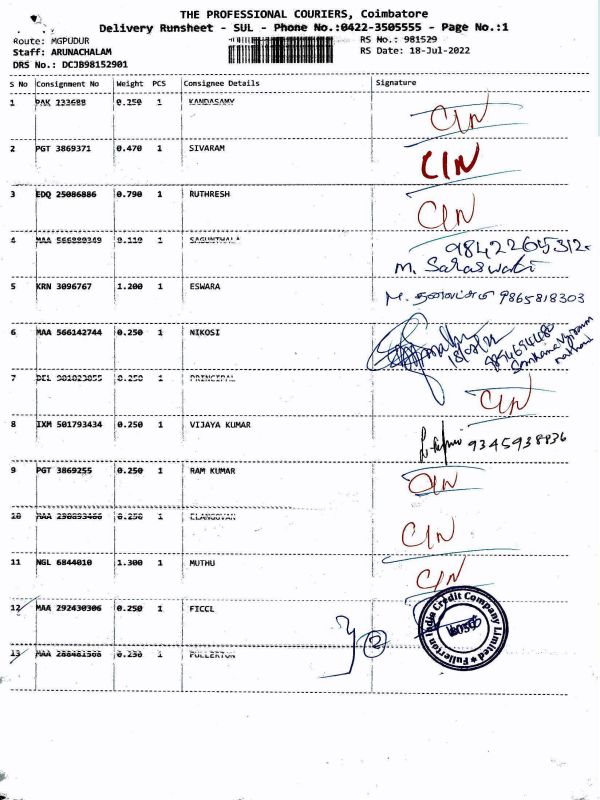 THE PROFESSIONAL COURIERS, Coimbatore
Delivery Runsheet - SUL - Phone No.:0422-3505555 - Page No.:1
Route: MGPUDUR RS No.: 981529
Staff: ARUNACHALAM RS Date: 18-Jul-2022
DRS No.: DCJB98152901
S No Consignment No Weight PCS Consignee Details Signature
1 PAK 233688 0.250 1 KANDASAMY CIN
2 PGT 3869371 0.470 1 SIVARAM CIN
3 EDQ 25086886 0.790 1 RUTHRESH CIN
4 MAA 566880349 0.110 1 SAGUNTHALA 9842265312
M. Saraswathi
5 KRN 3096767 1.200 1 ESWARA M. 9865818303
6 MAA 566142744 0.250 1 NIKOSI 18/07/22
7 DEL 981023855 0.250 1 PRINCIPAL CIN
8 IXM 501793434 0.250 1 VIJAYA KUMAR 9345938836
9 PGT 3869255 0.250 1 RAM KUMAR CIN
10 MAA 0.250 1 ELANGOVAN CIN
11 NGL 6844010 1.300 1 MUTHU CIN
12 MAA 292430306 0.250 1 FICCL
13 MAA 288481508 0.230 1 FULLERTON
2
Fullerton India Credit Company Limited